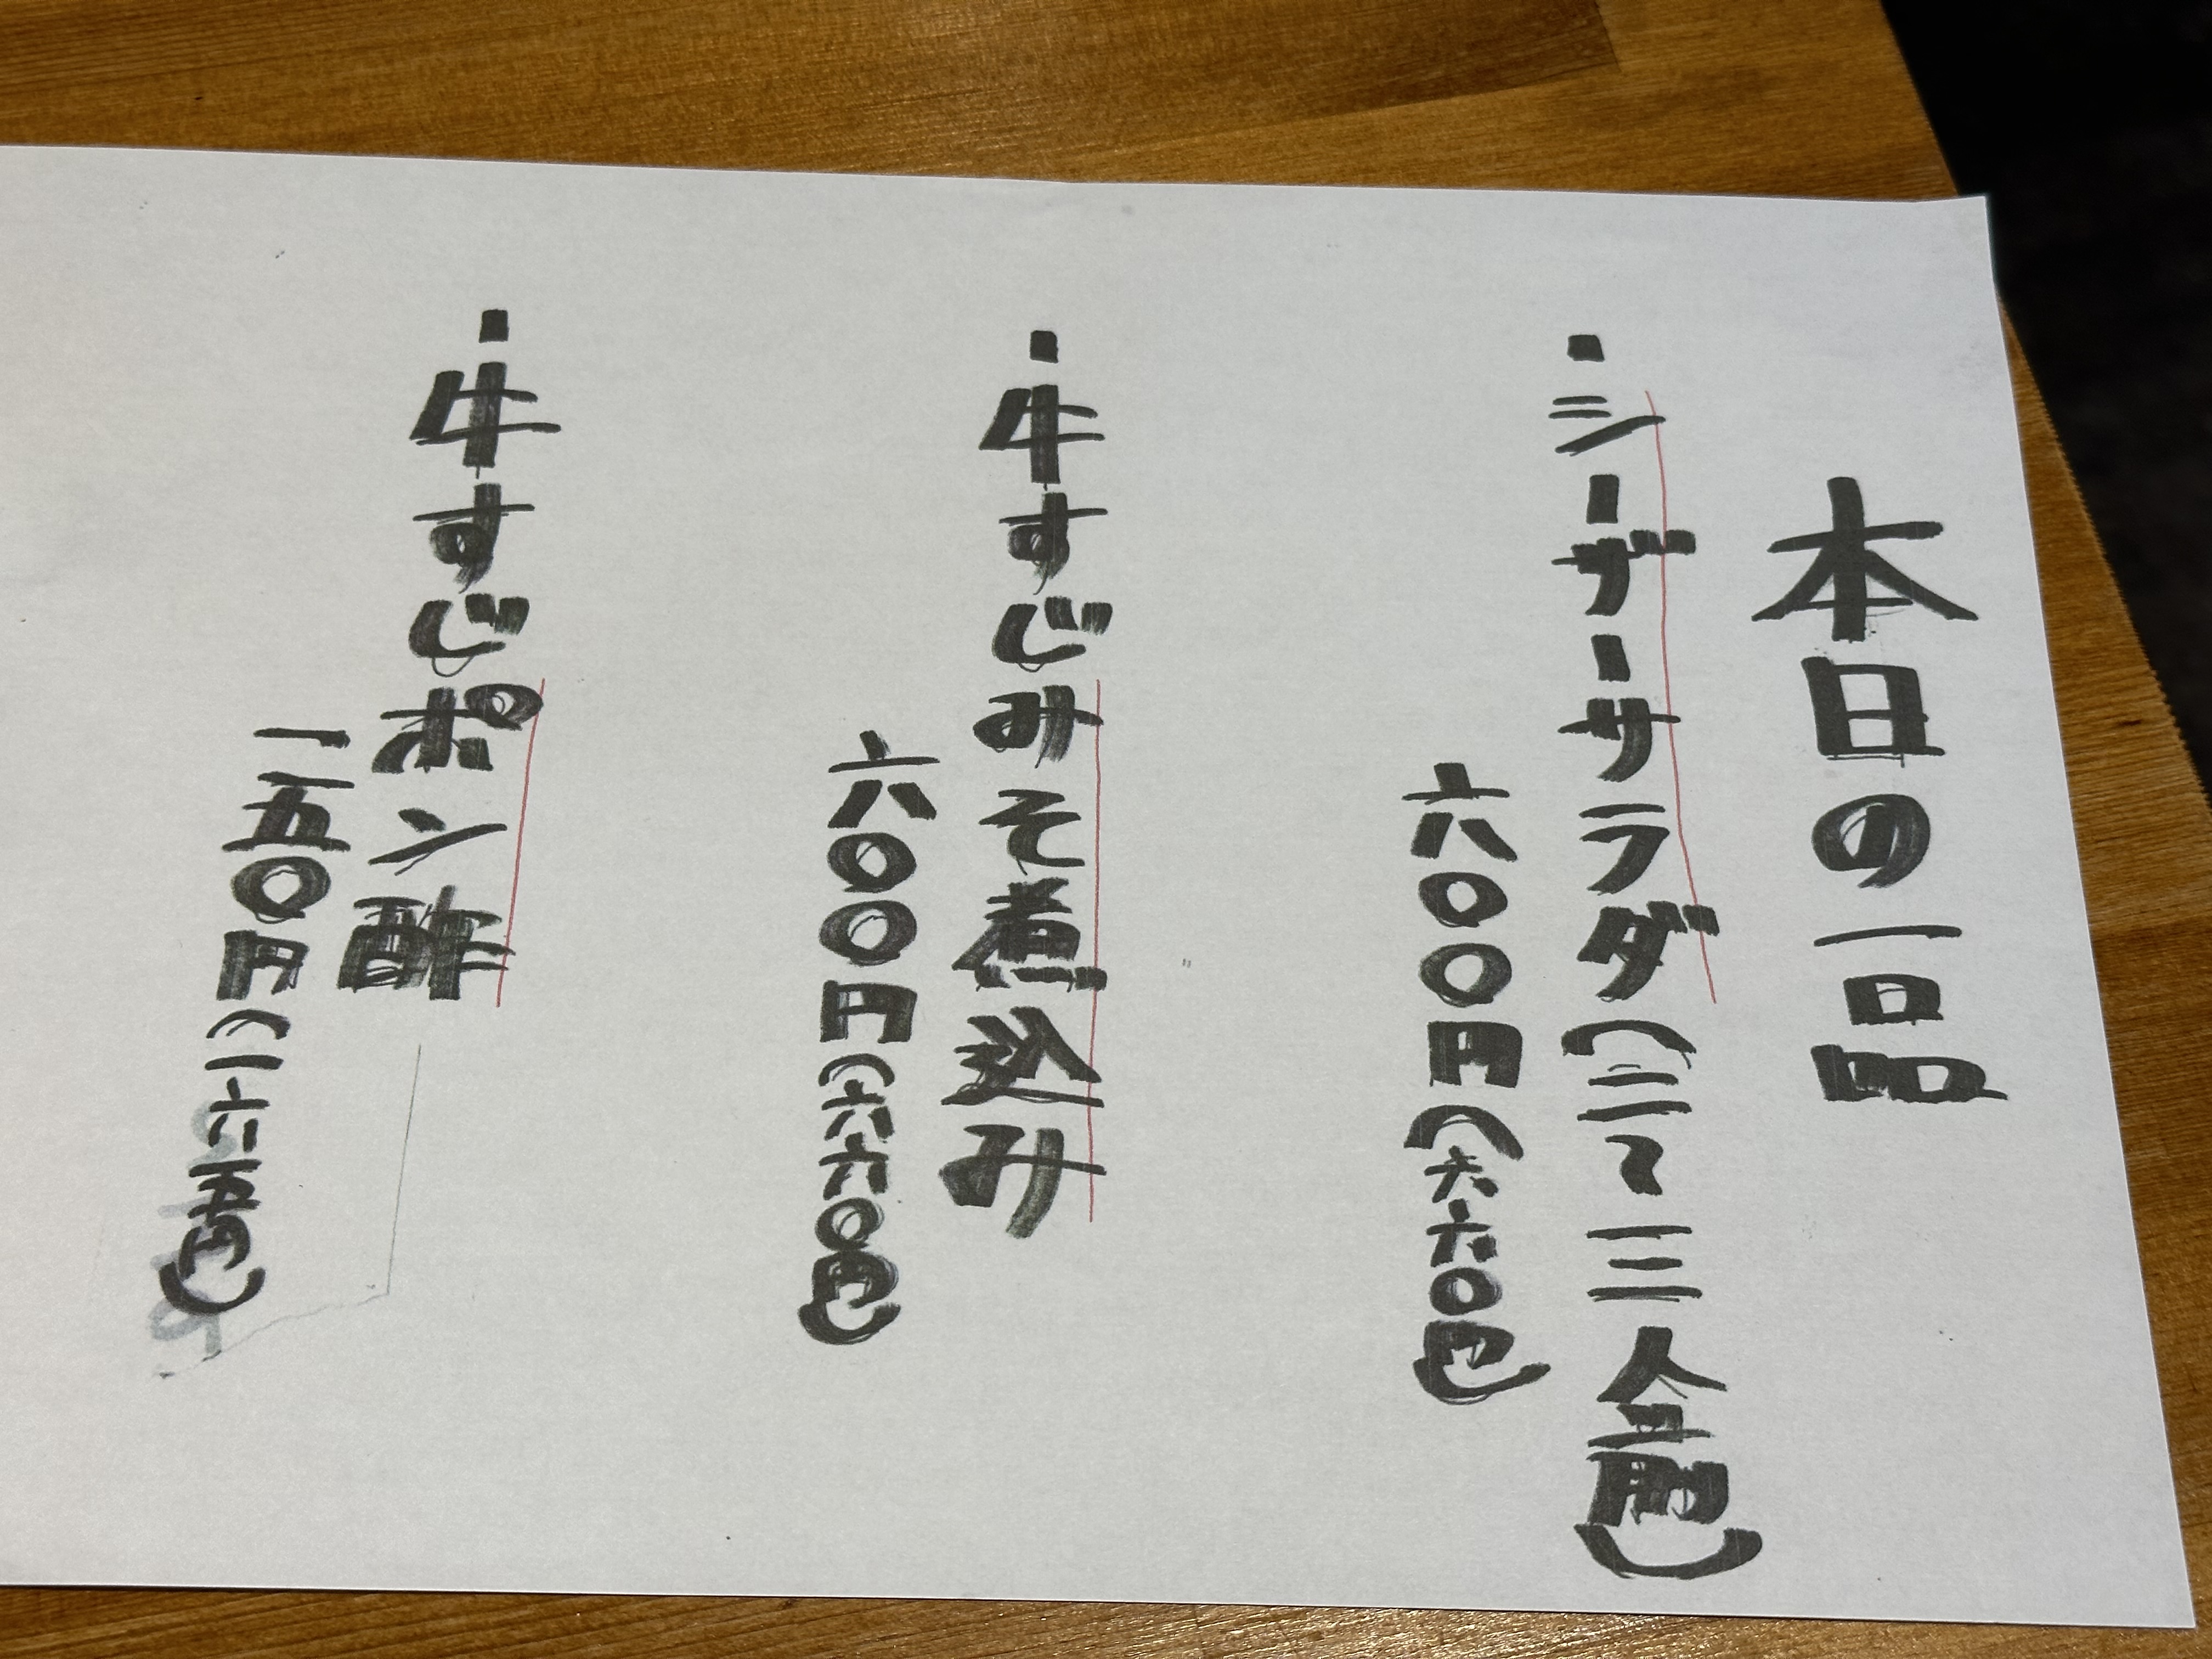 本日の一品
・シーザーサラダ(二〜三人前)
六〇〇円(六六〇円)
・牛すじみそ煮込み
六〇〇円(六六〇円)
・牛すじポン酢
一五〇円(一六五円)